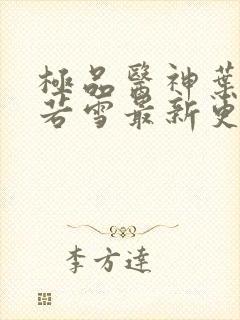 極品醫神葉
若雪最新更
李方達